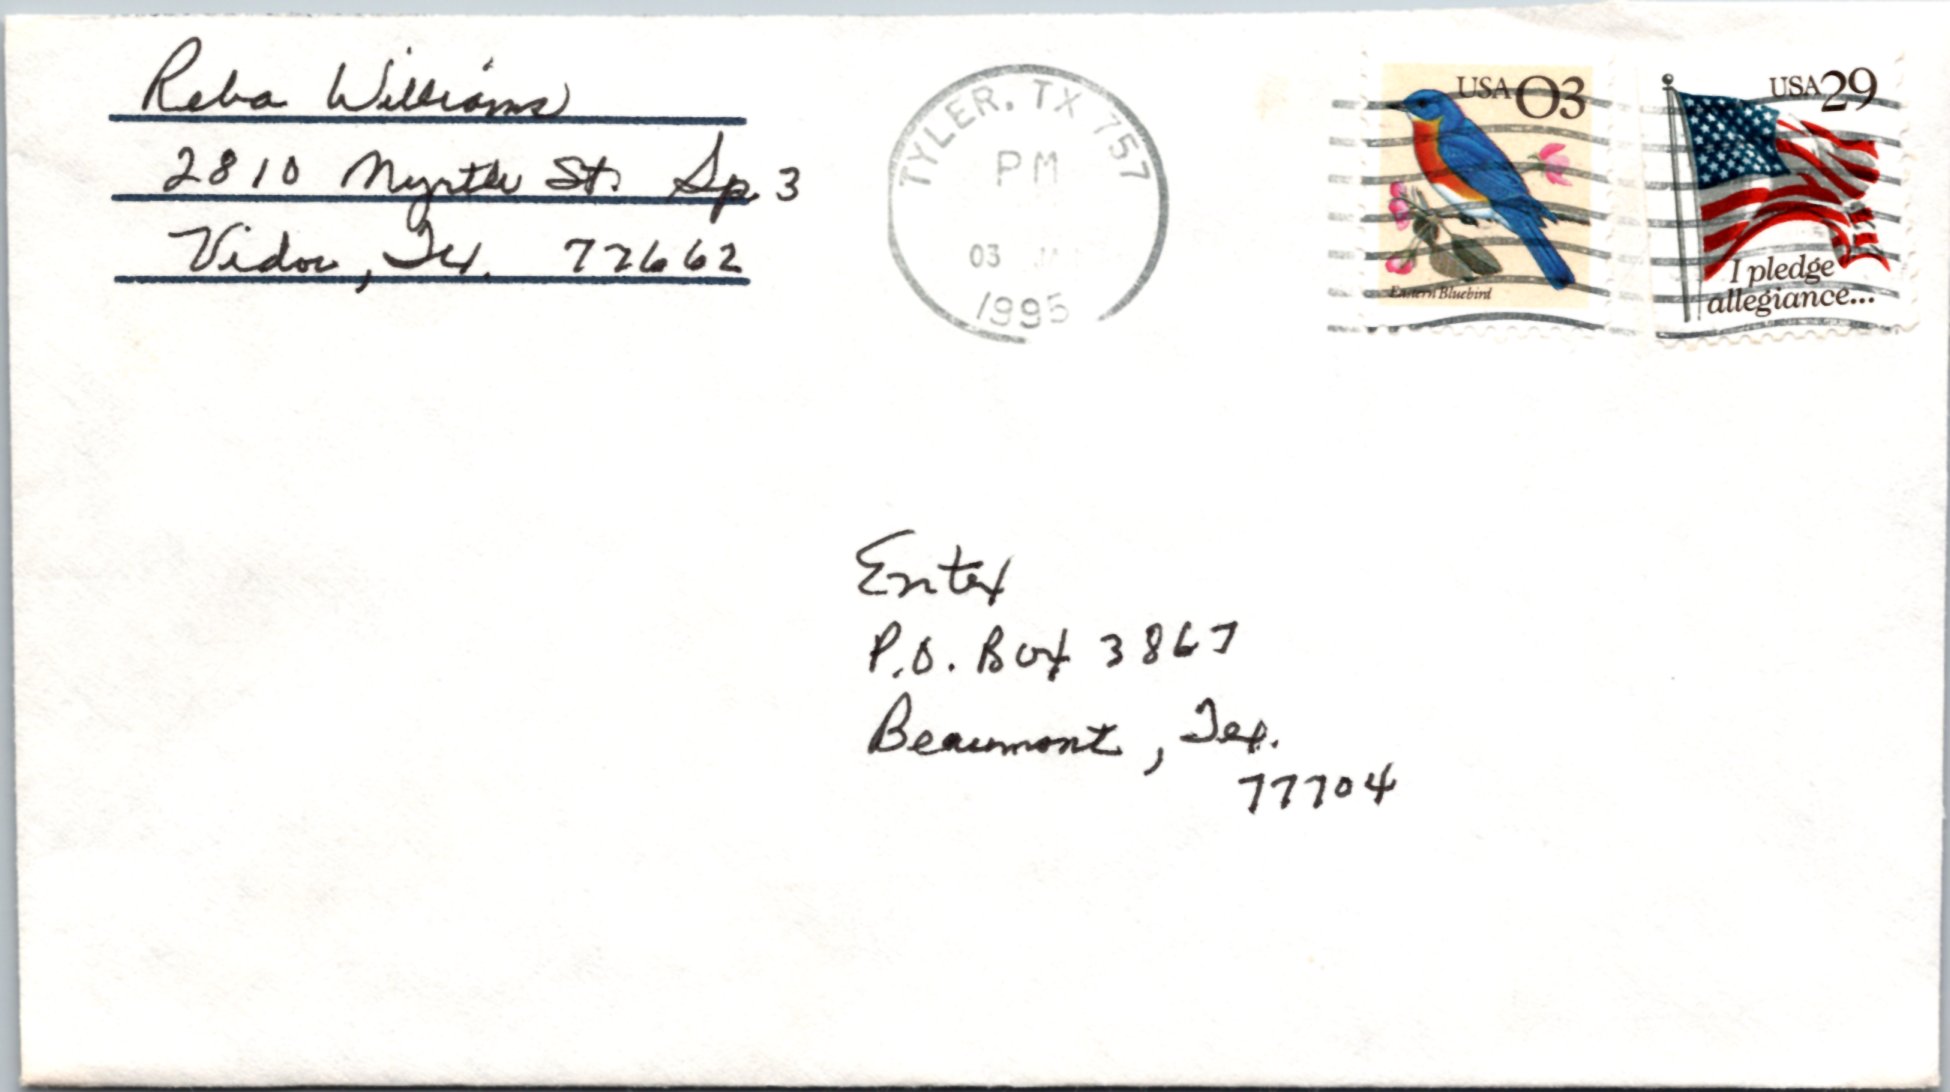 Reba Williams
2810 Myrtle St. Sp. 3
Vidor, Tex. 77662
TYLER, TX 757
PM
03 JA
1995
USA 03
Eastern Bluebird
USA 29
I pledge
allegiance...
Entex
P.O. Box 3867
Beaumont, Tex.
77704